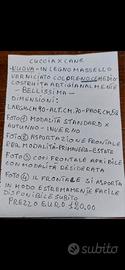 CUCCIA X CANE
-NUOVA- IN LEGNO MASSELLO
VERNICIATO COL. DRENO CMEDIO
COSTRUITA ARTIGIANALMENTE
- BELLISSIMA -
DIMENSIONI:
LARGH. CM. 90 - ALT. CM. 70 - PROF. CM. 52
FOTO 1 MODALITÀ STANDARD X
AUTUNNO - INVERNO
FOTO 2 ASPORTAZIONE FRONTALE
PER MODALITÀ - PRIMAVERA - ESTATE
FOTO 3 CON FRONTALE APRIBILE
CON MODALITÀ DESIDERATA
FOTO 4 IL FRONTALE SI ASPORTA
IN MODO ESTREMAMENTE FACILE
DISPONIBILE SUBITO
PREZZO EURO 180.00
subito